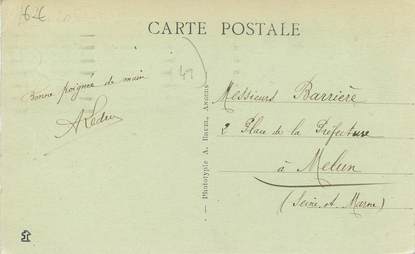 6-6
CARTE POSTALE
41
Bonne poignée de main
ALedru
— Phototypie A. Bruel, Angers
Messieurs Barrière
2 Place de la Préfecture
à Melun
(Seine et Marne)